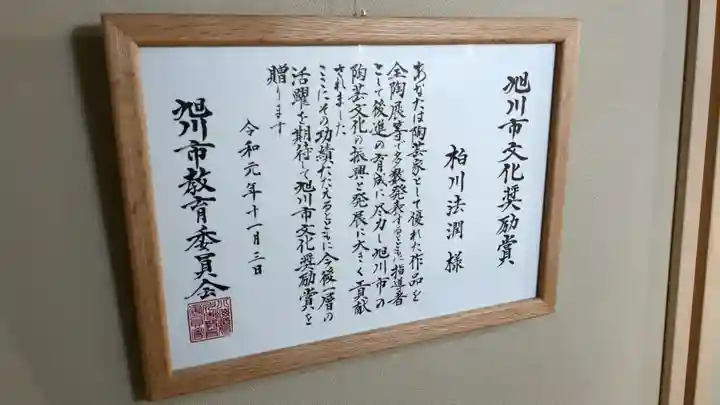 旭川市文化奨励賞
柏川法潤 様
あなたは陶芸家として優れた作品を
全陶展等で多数発表するとともに指導者
として後進の育成に尽力し旭川市の
陶芸文化の振興と発展に大きく貢献
されました
ここにその功績をたたえるとともに今後一層の
活躍を期待して旭川市文化奨励賞を
贈ります
令和元年十一月三日
旭川市教育委員会